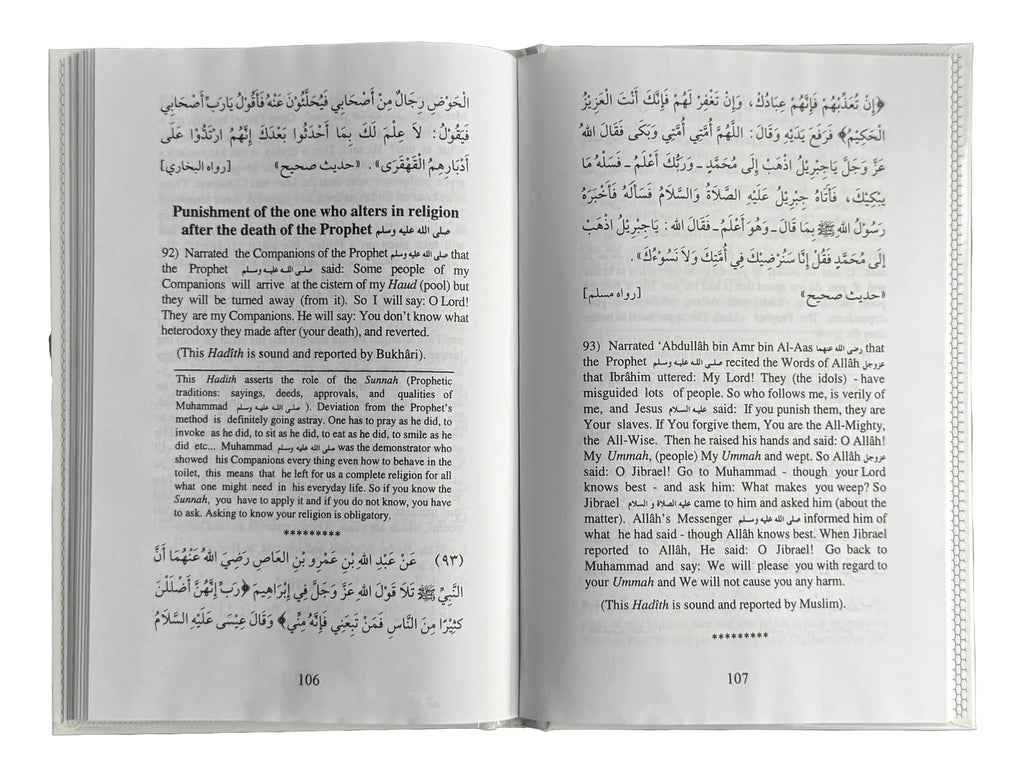 الْحَوْضِ رِجَالٌ مِنْ أَصْحَابِي فَيُحَلَّئُونَ عَنْهُ فَأَقُولُ يَارَبِّ أَصْحَابِي
فَيَقُولُ: لاَ عِلْمَ لَكَ بِمَا أَحْدَثُوا بَعْدَكَ إِنَّهُمُ ارْتَدُّوا عَلَى
أَدْبَارِهِمُ الْقَهْقَرَى». «حديث صحيح» [رواه البخاري]
Punishment of the one who alters in religion
after the death of the Prophet صلى الله عليه وسلم
92) Narrated the Companions of the Prophet صلى الله عليه وسلم that
the Prophet صلى الله عليه وسلم said: Some people of my
Companions will arrive at the cistern of my Haud (pool) but
they will be turned away (from it). So I will say: O Lord!
They are my Companions. He will say: You don't know what
heterodoxy they made after (your death), and reverted.
(This Hadîth is sound and reported by Bukhâri).
This Hadith asserts the role of the Sunnah (Prophetic
traditions: sayings, deeds, approvals, and qualities of
Muhammad صلى الله عليه وسلم ). Deviation from the Prophet's
method is definitely going astray. One has to pray as he did, to
invoke as he did, to sit as he did, to eat as he did, to smile as he
did etc... Muhammad صلى الله عليه وسلم was the demonstrator who
showed his Companions every thing even how to behave in the
toilet, this means that he left for us a complete religion for all
what one might need in his everyday life. So if you know the
Sunnah, you have to apply it and if you do not know, you have
to ask. Asking to know your religion is obligatory.
*********
(٩٣) عَنْ عَبْدِ اللهِ بْنِ عَمْرِو بْنِ العَاصِ رَضِيَ اللهُ عَنْهُمَا أَنَّ
النَّبِيَّ ﷺ تَلاَ قَوْلَ اللهِ عَزَّ وَجَلَّ فِي إِبْرَاهِيمَ ﴿رَبِّ إِنَّهُنَّ أَضْلَلْنَ
كَثِيْرًا مِنَ النَّاسِ فَمَنْ تَبِعَنِي فَإِنَّهُ مِنِّي﴾ وَقَالَ عِيْسَى عَلَيْهِ السَّلاَمُ
106
﴿إِنْ تُعَذِّبْهُمْ فَإِنَّهُمْ عِبَادُكَ، وَإِنْ تَغْفِرْ لَهُمْ فَإِنَّكَ أَنْتَ الْعَزِيْزُ
الْحَكِيْمُ﴾ فَرَفَعَ يَدَيْهِ وَقَالَ: اللَّهُمَّ أُمَّتِي أُمَّتِي وَبَكَى فَقَالَ اللهُ
عَزَّ وَجَلَّ يَاجِبْرِيْلُ اذْهَبْ إِلَى مُحَمَّدٍ ـ وَرَبُّكَ أَعْلَمُ ـ فَسَلْهُ مَا
يُبْكِيْكَ، فَأَتَاهُ جِبْرِيْلُ عَلَيْهِ الصَّلاَةُ وَالسَّلاَمُ فَسَأَلَهُ فَأَخْبَرَهُ
رَسُوْلُ اللهِ ﷺ بِمَا قَالَ ـ وَهُوَ أَعْلَمُ ـ فَقَالَ اللهُ: يَاجِبْرِيْلُ اذْهَبْ
إِلَى مُحَمَّدٍ فَقُلْ إِنَّا سَنُرْضِيْكَ فِي أُمَّتِكَ وَلاَ نَسُوْءُكَ».
«حديث صحيح» [رواه مسلم]
93) Narrated ‘Abdullâh bin Amr bin Al-Aas رضي الله عنهما that
the Prophet صلى الله عليه وسلم recited the Words of Allâh عزوجل
that Ibrâhim uttered: My Lord! They (the idols) - have
misguided lots of people. So who follows me, is verily of
me, and Jesus عليه السلام said: If you punish them, they are
Your slaves. If You forgive them, You are the All-Mighty,
the All-Wise. Then he raised his hands and said: O Allâh!
My Ummah, (people) My Ummah and wept. So Allâh عزوجل
said: O Jibrael! Go to Muhammad - though your Lord
knows best - and ask him: What makes you weep? So
Jibrael عليه الصلاة و السلام came to him and asked him (about the
matter). Allâh's Messenger صلى الله عليه وسلم informed him of
what he had said - though Allâh knows best. When Jibrael
reported to Allâh, He said: O Jibrael! Go back to
Muhammad and say: We will please you with regard to
your Ummah and We will not cause you any harm.
(This Hadîth is sound and reported by Muslim).
*********
107